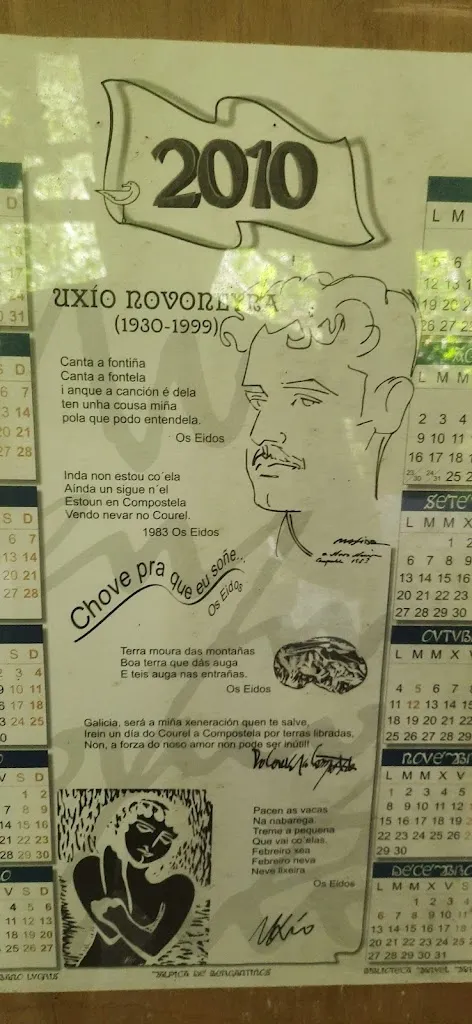 2010
UXÍO NOVONEYRA
(1930-1999)
Canta a fontiña
Canta a fontela
i anque a canción é dela
ten unha cousa miña
pola que podo entendela.
Os Eidos
Inda non estou co´ela
Aínda un sigue n´el
Estoun en Compostela
Vendo nevar no Courel.
1983 Os Eidos
Chove pra que eu soñe...
Os Eidos
Terra moura das montañas
Boa terra que dás auga
E teis auga nas entrañas.
Os Eidos
Galicia, será a miña xeneración quen te salve,
Irein un día do Courel a Compostela por terras libradas,
Non, a forza do noso amor non pode ser inútil!
Pacen as vacas
Na nabarega
Treme a pequena
Que vai co´elas
Febreiro xea
Febreiro neva
Neve lixeira
Os Eidos
Uxío
D
30 31
S D
6 7
13 14
20 21
27 28
S D
6 7
13 14
20 21
27 28
S D
2 3 4
9 10 11
16 17 18
23 24 25
30
V S D
1 2
7 8 9
14 15 16
21 22 23
28 29 30
V S D
4 5 6
11 12 13
18 19 20
25 26 27
L M
5 6
12 13 14
19 20 21
26 27 28
L M M X
2 3 4
9 10 11
16 17 18
23/30 24/31 25
SETE
L M M X
1 2
6 7 8 9
13 14 15 16
20 21 22 23
27 28 29 30
OUTUBR
L M M X V
4 5 6 7 8
11 12 13 14 15
18 19 20 21 22
25 26 27 28 29
NOVEMBR
L M M X V S
1 2 3 4 5 6
8 9 10 11 12 13
15 16 17 18 19 20
22 23 24 25 26 27
29 30
DECEMBRO
L M M X V S
6 7 8 9 10 11
13 14 15 16 17 18
20 21 22 23 24 25
27 28 29 30 31
MALPICA DE BERGANTIÑOS
BIBLIOTECA